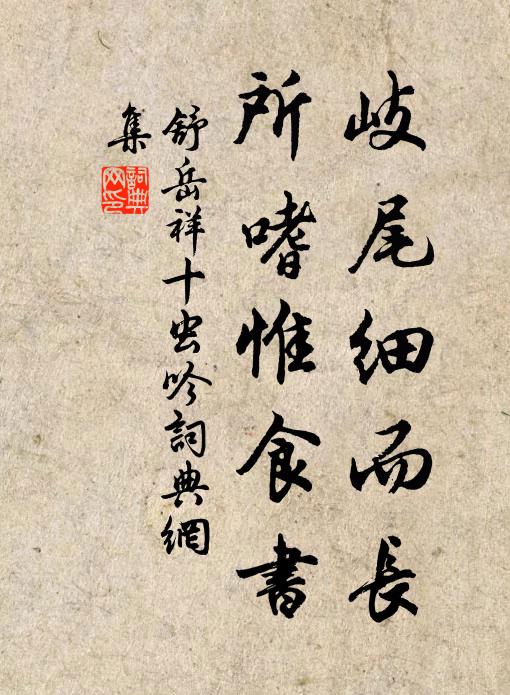 岐尾細而長
所嗜惟食書
舒岳祥十虫吟詞典網
集
詞典
网印